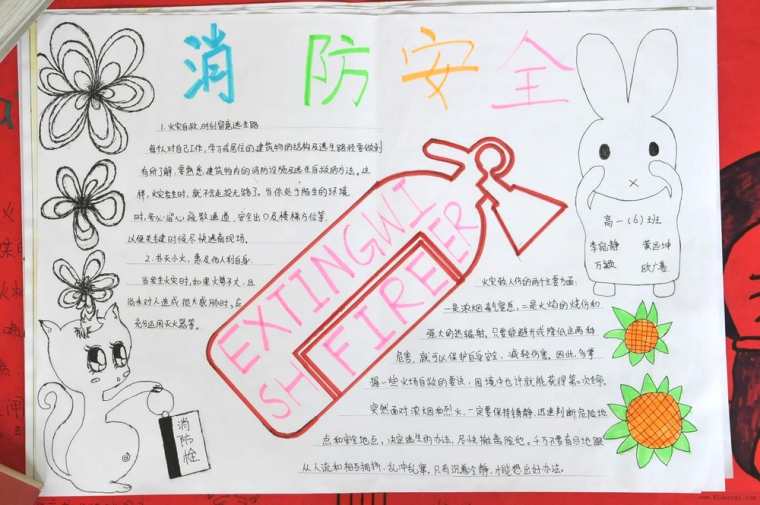 消防安全
1.火灾自救,时刻留意逃生路
每个人对自己工作,学习或居住的建筑物的结构及逃生路径要做到
有所了解,要熟悉建筑物内的消防设施及逃生自救的方法。这
样,火灾发生时,就不会走投无路了。当你处于陌生的环境
时,务必留心疏散通道,安全出口及楼梯方位等,
以便关键时候尽快逃离现场。
2.扑灭小火,惠及他人利自身
当发生火灾时,如果火势不大,且
尚未对人造成很大威胁时,应
充分运用灭火器等。
EXTINGWI
SH FIREER
高一(6)班
李宛静
万颖
消防栓
火灾致人伤的两个主要方面:
一是浓烟毒气窒息,二是火焰的烧伤和
强大的热辐射。只要能避开或降低这两种
危害,就可以保护自身安全,减轻伤害。因此,多掌
握一些火场自救的要诀,困境中也许就能获得第二次生命。
突然面对浓烟和烈火,一定要保持镇静,迅速判断危险地
点和安全地点,决定逃生的办法,尽快撤离险地。千万不要盲目地跟
从人流和相互拥挤,乱冲乱窜。只有沉着冷静,才能想出好办法。